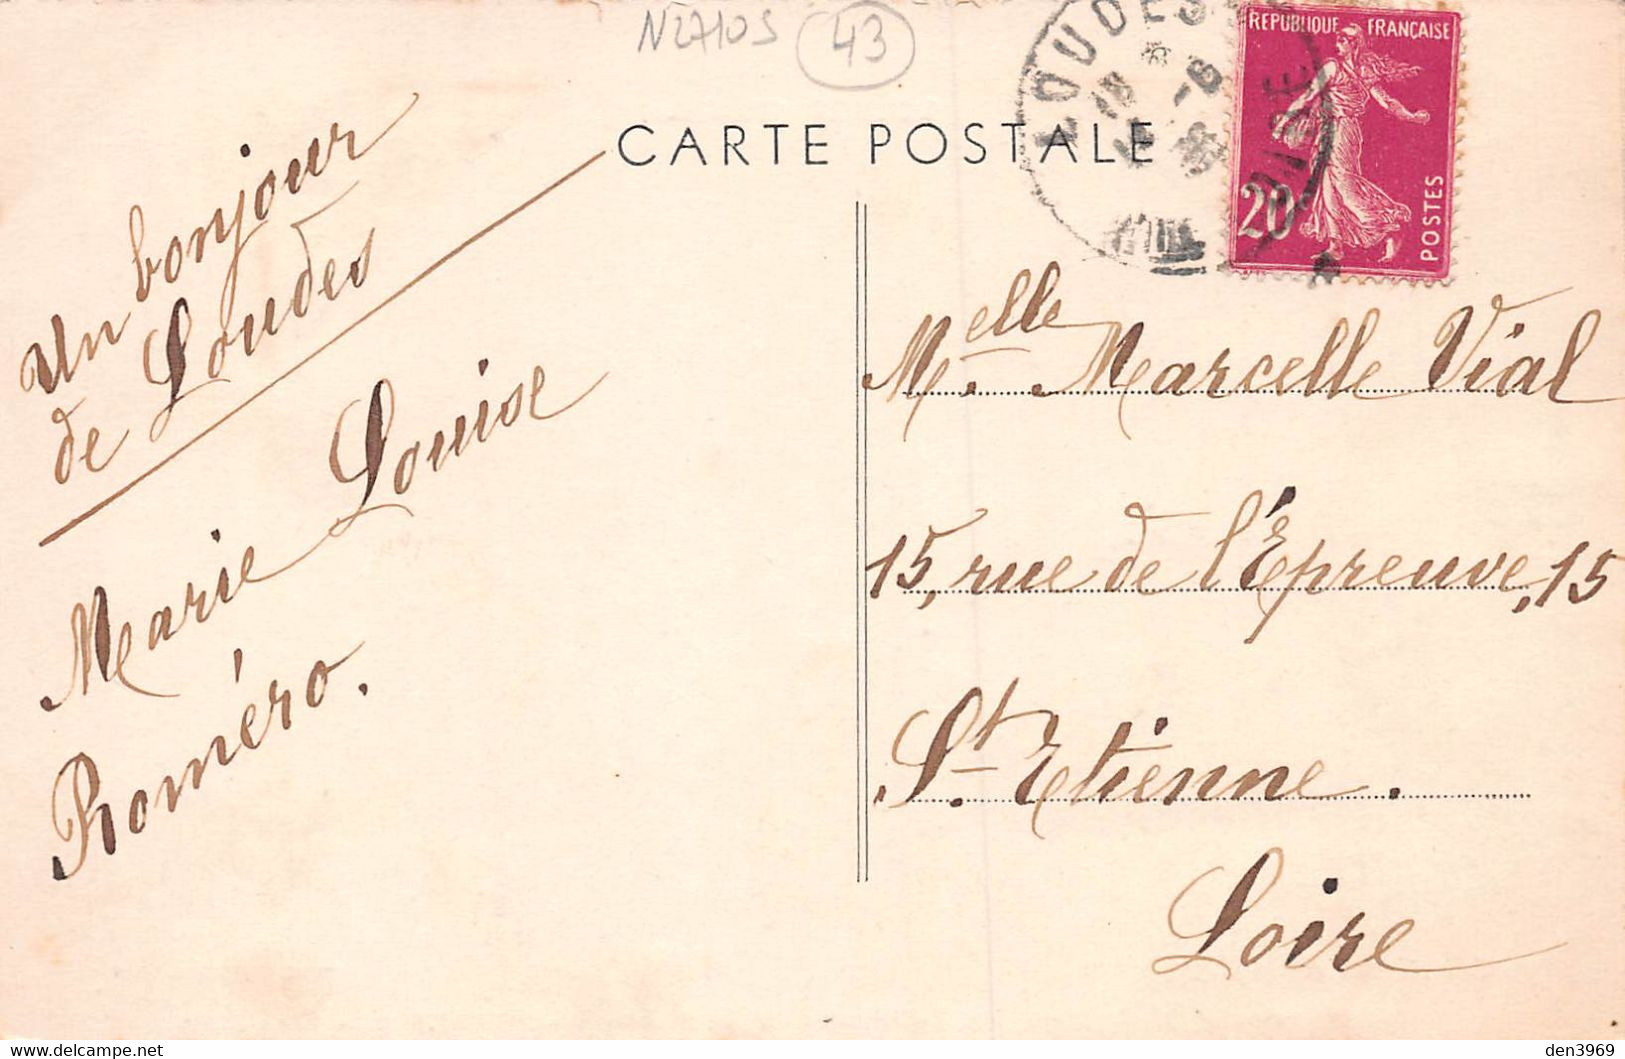 N27105 43
CARTE POSTALE
LOUDES
REPUBLIQUE FRANÇAISE
20
POSTES
Un bonjour
de Loudes
Marie Louise
Roméro.
Melle. Marcelle Vial
15, rue de l'Épreuve, 15
St. Etienne.
Loire
den3969